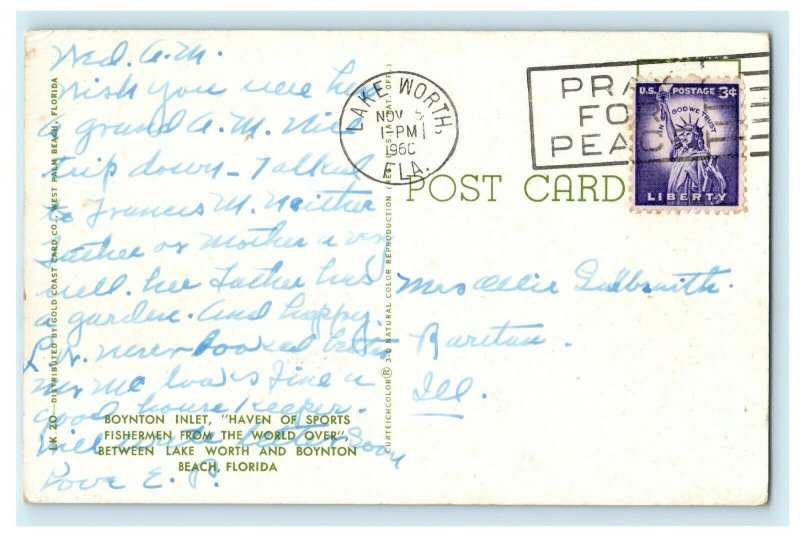 Wed. A.M.
Wish you were here
a grand A.M. Nice
trip down - Talked
to Francis M. Neither
Father or Mother a
well. her Father has
a garden. And happy.
L.N. never looked better
Mc looks fine a
good housekeeper.
Will write better soon
Love E. P.
LK 20—DISTRIBUTED BY GOLD COAST CARD CO., WEST PALM BEACH, FLORIDA
BOYNTON INLET, "HAVEN OF SPORTS
FISHERMEN FROM THE WORLD OVER"
BETWEEN LAKE WORTH AND BOYNTON
BEACH, FLORIDA
CURTEICHCOLOR® 3-D NATURAL COLOR REPRODUCTION (REG. U.S.A. PAT. OFF.)
LAKE WORTH,
NOV
1-PM
1960
FLA.
PRAY
FOR
PEACE
U.S. POSTAGE 3¢
IN GOD WE TRUST
LIBERTY
POST CARD
Mrs Ollie Galbraith.
Raritan.
Ill.